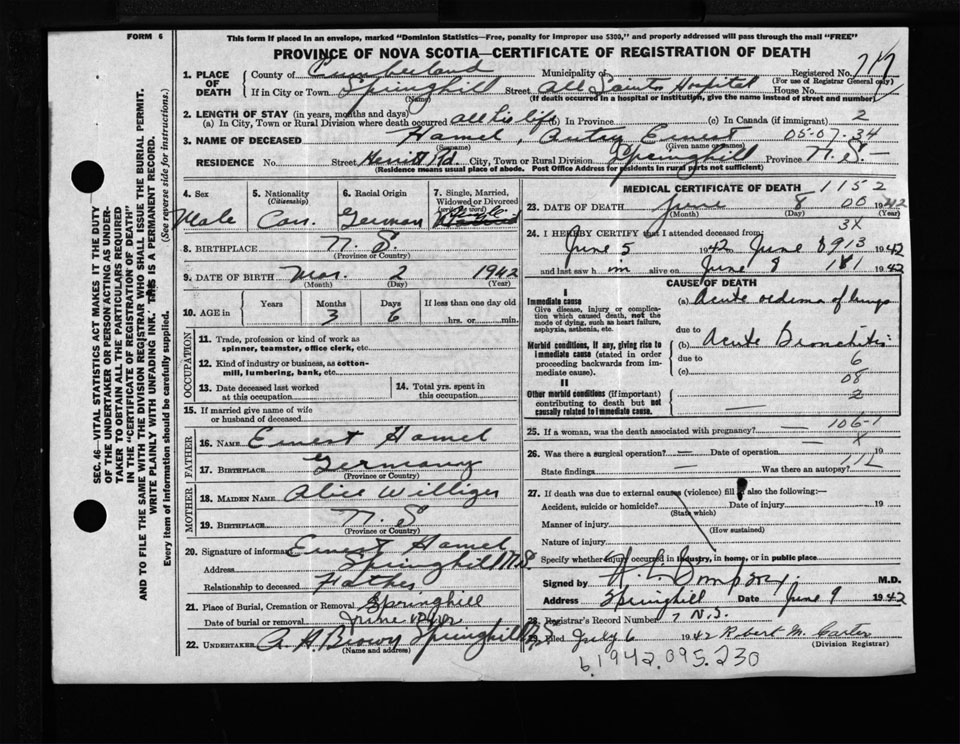 FORM 6
This form If placed in an envelope, marked "Dominion Statistics—Free, penalty for improper use $300," and properly addressed will pass through the mail "FREE"
PROVINCE OF NOVA SCOTIA—CERTIFICATE OF REGISTRATION OF DEATH
SEC. 46—VITAL STATISTICS ACT MAKES IT THE DUTY
OF THE UNDERTAKER OR PERSON ACTING AS UNDER-
TAKER TO OBTAIN ALL THE PARTICULARS REQUIRED
IN THE "CERTIFICATE OF REGISTRATION OF DEATH"
AND TO FILE THE SAME WITH THE DIVISION REGISTRAR WHO SHALL ISSUE THE BURIAL PERMIT.
WRITE PLAINLY WITH UNFADING INK. THIS IS A PERMANENT RECORD.
Every item of information should be carefully supplied. (See reverse side for instructions.)
1. PLACE OF DEATH
County of Cumberland Municipality of Registered No. 717
(For use of Registrar General only)
If in City or Town Springhill Street All Saints Hospital House No.
(Name) (If death occurred in a hospital or institution, give the name instead of street and number)
2. LENGTH OF STAY (in years, months and days)
(a) In City, Town or Rural Division where death occurred all his life (b) In Province (c) In Canada (if immigrant) 2
3. NAME OF DECEASED Hamel, Ernest 05-07-34
(Surname) (Given name or names)
RESIDENCE No. Street Herritt Rd. City, Town or Rural Division Springhill Province N.S.—
(Residence means usual place of abode. Post Office Address for residents in rural parts not sufficient)
4. Sex
Male
5. Nationality
(Citizenship)
Can.
6. Racial Origin
German
7. Single, Married,
Widowed or Divorced
(write the word)
Single
8. BIRTHPLACE N.S.
(Province or Country)
9. DATE OF BIRTH Mar. 2 1942
(Month) (Day) (Year)
10. AGE in Years Months Days If less than one day old
3 6 hrs. or min.
OCCUPATION
11. Trade, profession or kind of work as
spinner, teamster, office clerk, etc.
12. Kind of industry or business, as cotton-
mill, lumbering, bank, etc.
13. Date deceased last worked
at this occupation
14. Total yrs. spent in
this occupation
15. If married give name of wife
or husband of deceased
FATHER
16. NAME Ernest Hamel
17. BIRTHPLACE Germany
(Province or Country)
MOTHER
18. MAIDEN NAME Alice Williger
19. BIRTHPLACE N.S
(Province or Country)
20. Signature of informant Ernest Hamel
Address Springhill N.S.
Relationship to deceased Father
21. Place of Burial, Cremation or Removal Springhill
Date of burial or removal June
22. UNDERTAKER A. H. Brown Springhill
(Name and address)
MEDICAL CERTIFICATE OF DEATH 1152
23. DATE OF DEATH June 8 00 1942
(Month) (Day) (Year)
24. I HEREBY CERTIFY that I attended deceased from: 3X
June 5 1942 to June 8 913 1942
and last saw him alive on June 8 181 1942
CAUSE OF DEATH
I
Immediate cause (a) Acute oedema of lungs
Give disease, injury or complica-
tion which caused death, not the
mode of dying, such as heart failure,
asphyxia, asthenia, etc.
due to
Morbid conditions, if any, giving rise to
immediate cause (stated in order
proceeding backwards from im-
mediate cause).
(b) Acute Bronchitis
due to 6
(c) 08
II
Other morbid conditions (if important)
contributing to death but not
causally related to immediate cause.
2
25. If a woman, was the death associated with pregnancy? — 106-1
26. Was there a surgical operation? — Date of operation — X 19
State findings — Was there an autopsy?
27. If death was due to external causes (violence) fill in also the following:—
Accident, suicide or homicide? Date of injury 19
(State which)
Manner of injury
(How sustained)
Nature of injury
Specify whether injury occurred in industry, in home, or in public place
Signed by M.D.
Address Springhill Date June 9 1942
28. Registrar's Record Number 7 N.S.
29. Filed July 6 1942 Robert M. Carter
(Division Registrar)
61942.095.230